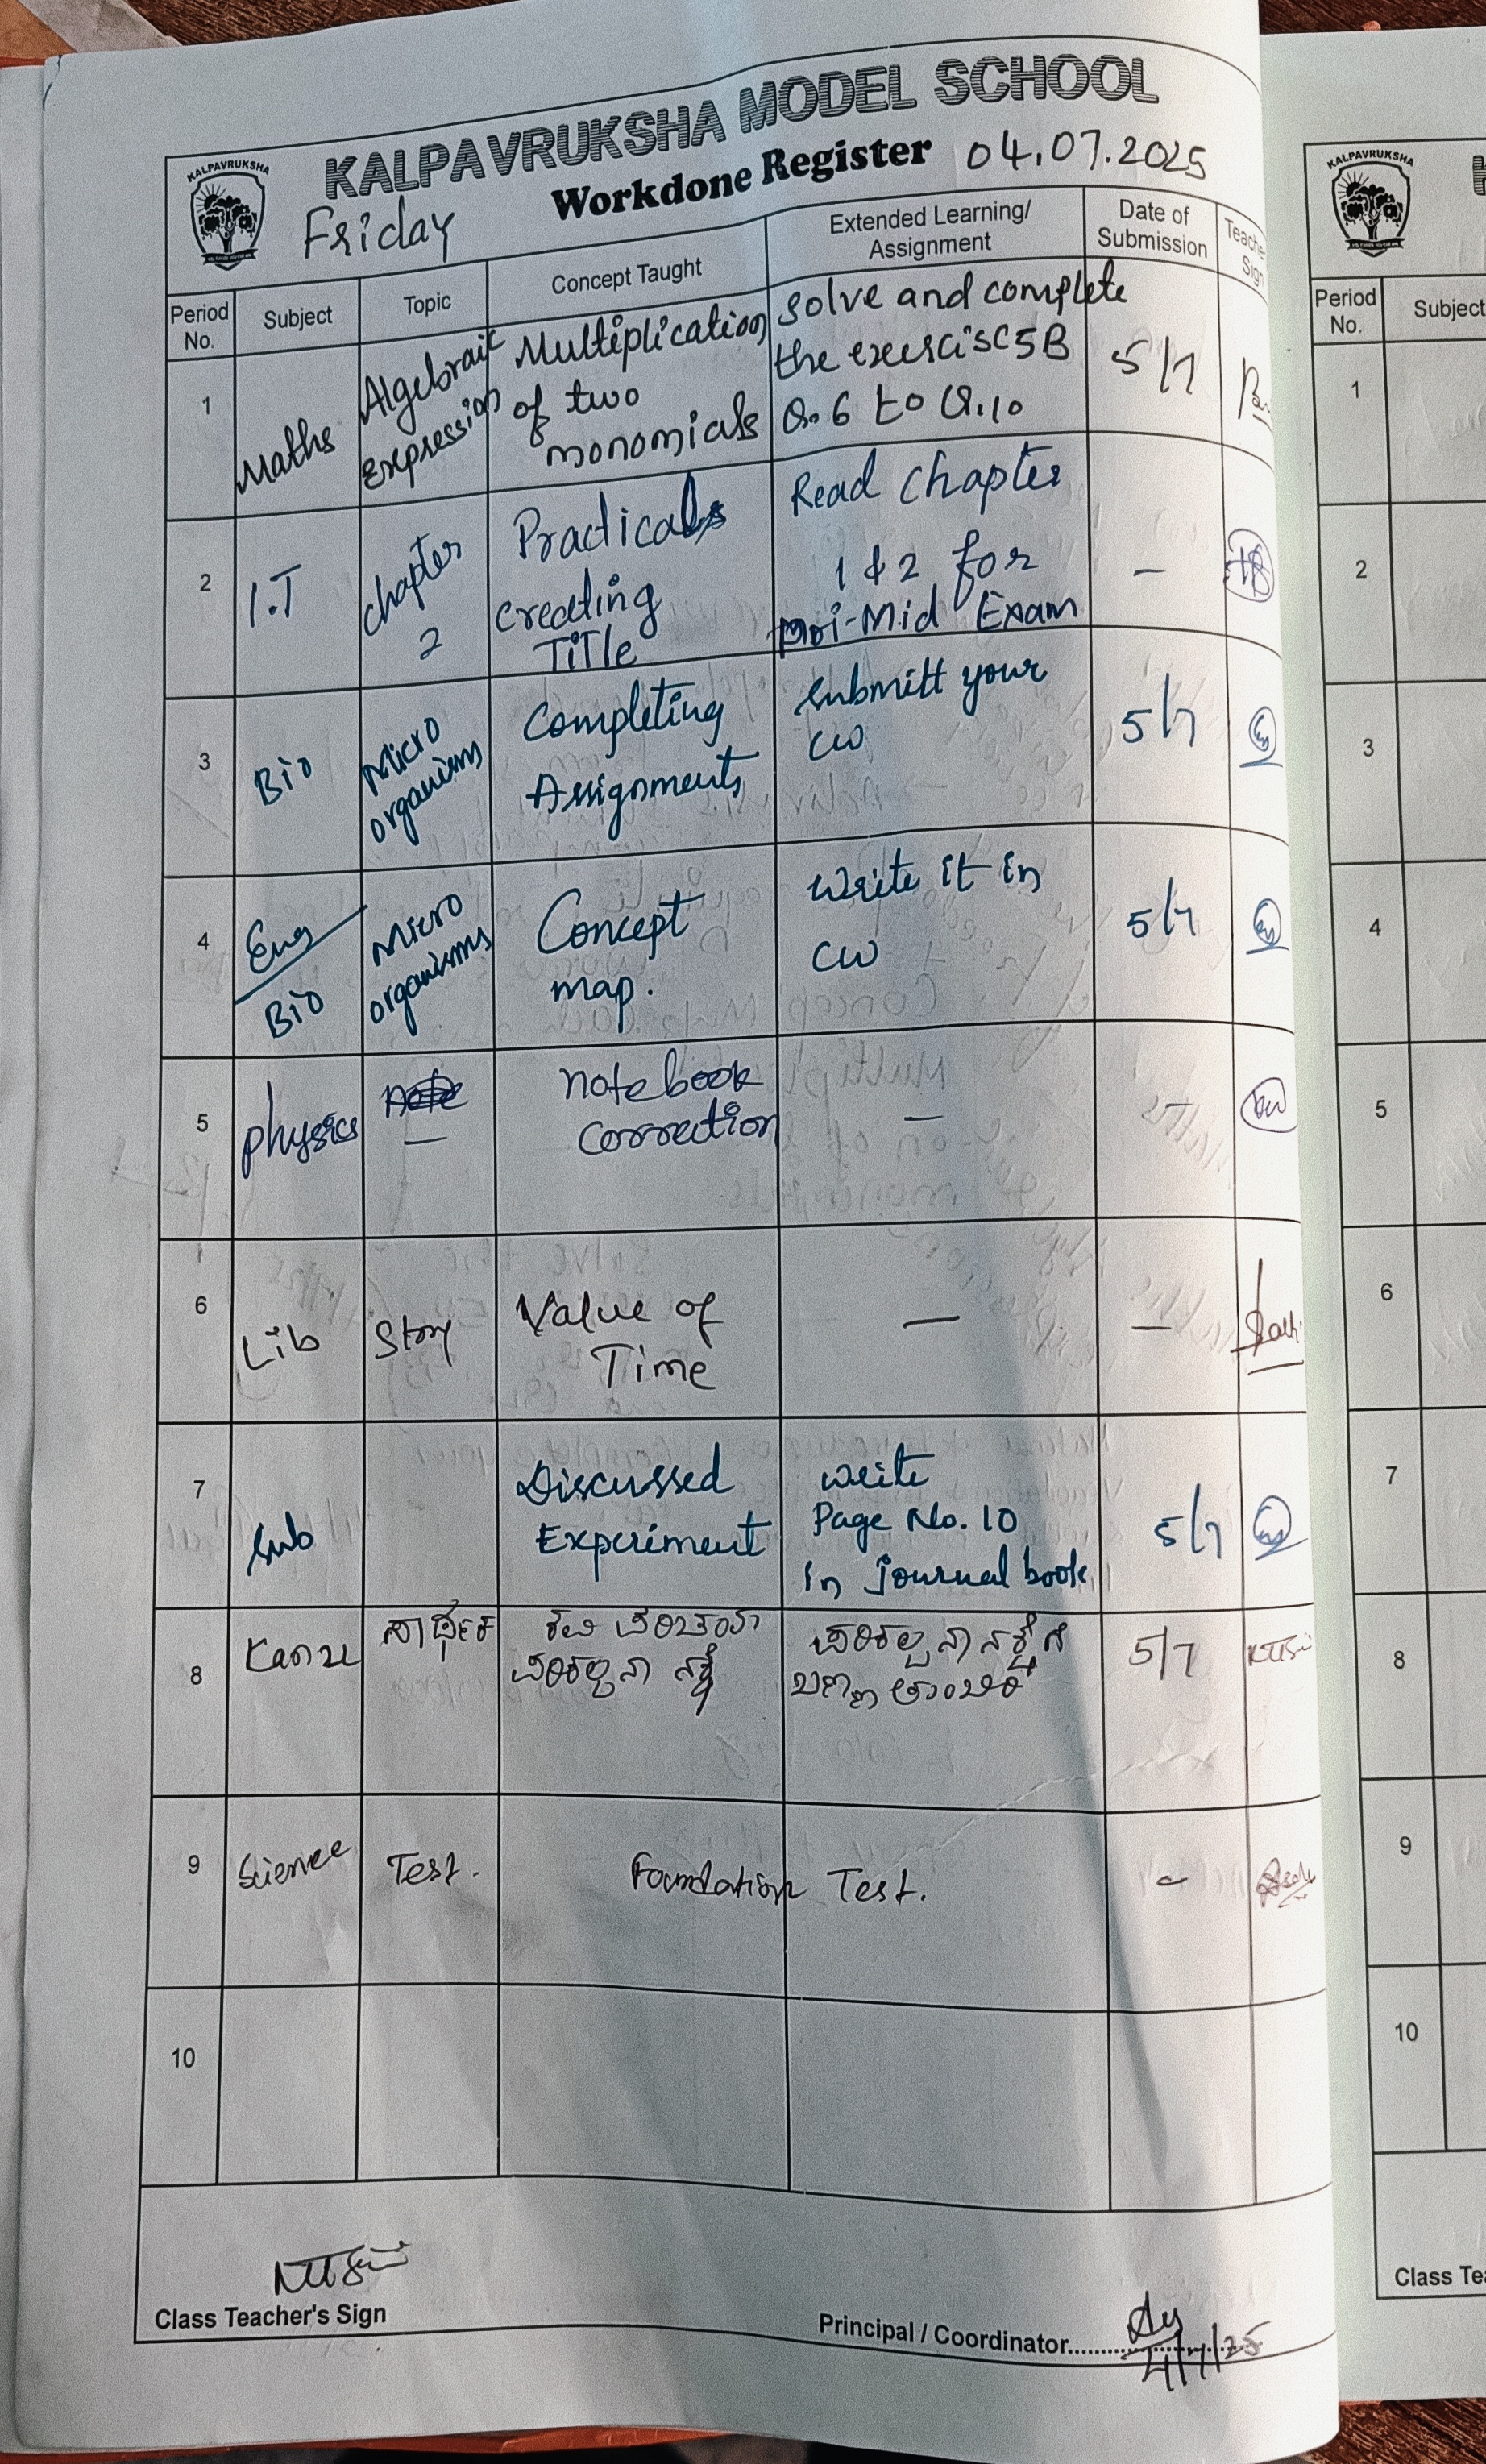 KALPAVRUKSHA MODEL SCHOOL
KALPAVRUKSHA
Workdone Register 04.07.2025
Friday
Period No. Subject Topic Concept Taught Extended Learning/ Assignment Date of Submission
1 Maths Algebraic Expression Multiplication of two monomials Solve and complete the exercise 5B Q.6 to Q.10 5/7
2 I.T chapter 2 Practicals creating Title Read chapter 1 & 2 for Pri-Mid Exam -
3 Bio Micro organisms Completing Assignments Submitt your CW 5/7
4 Eng/Bio Micro organisms Concept map. Write it in CW 5/7
5 physics - notebook correction - -
6 Lib Story Value of Time - -
7 Sub Discussed Experiment write Page No. 10 in journal book 5/7
8 ಪರಿಕಲ್ಪನಾ ನಕ್ಷೆ ಪರಿಕಲ್ಪನಾ ನಕ್ಷೆಗೆ 5/7
9 Science Test. Foundation Test. -
10
Class Teacher's Sign
Principal / Coordinator
4/7/25
KALPAVRUKSHA
Period No. Subject
1
2
3
4
5
6
7
8
9
10